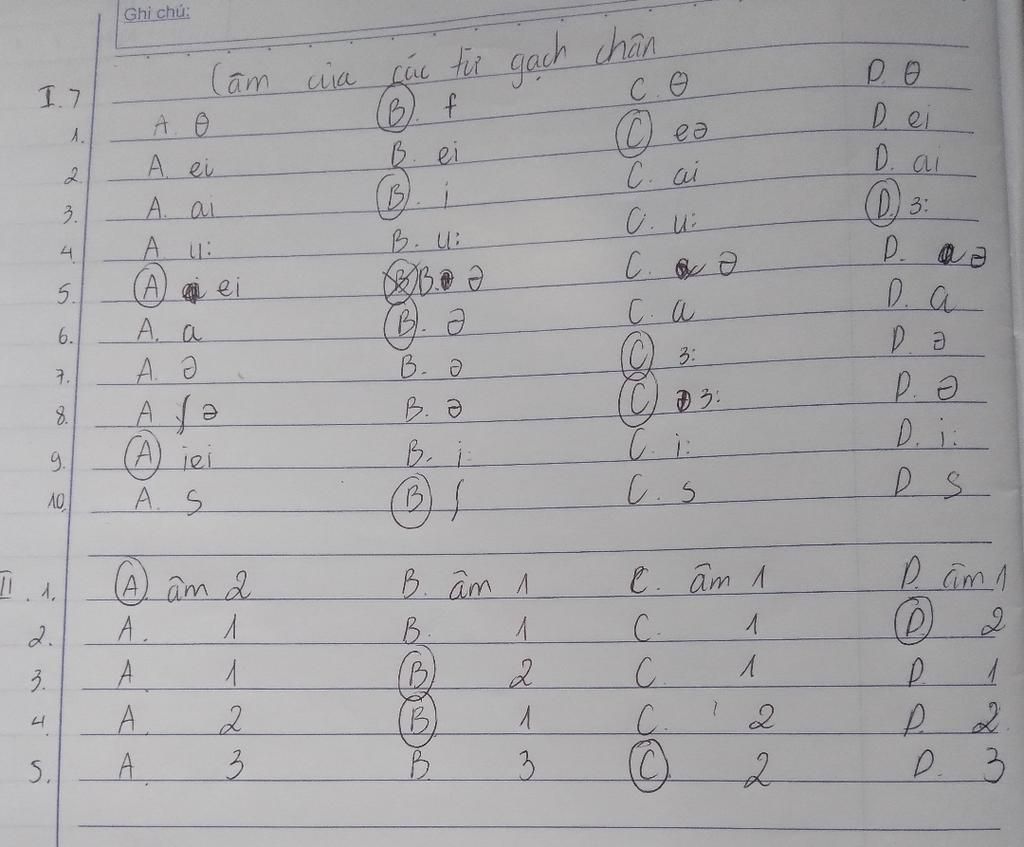 Ghi chú:
(âm của các từ gạch chân
I.7
1. A. θ B. f C. θ D. θ
2. A. ei B. ei C. eə D. ei
3. A. ai B. i C. ai D. ai
4. A. u: B. u: C. u: D. 3:
5. A ei B. ə C. ə D. ə
6. A. a B. ə C. a D. a
7. A. ə B. ə C 3: D. ə
8. A ə B. ə C 3: D. ə
9. A iei B. i: C. i: D. i:
10. A. s B ʃ C. s D s
II. 1. A âm 2 B. âm 1 C. âm 1 D. âm 1
2. A. 1 B. 1 C. 1 D. 2
3. A. 1 B 2 C. 1 D. 1
4. A. 2 B 1 C. 2 D. 2.
5. A. 3 B 3 C 2 D. 3